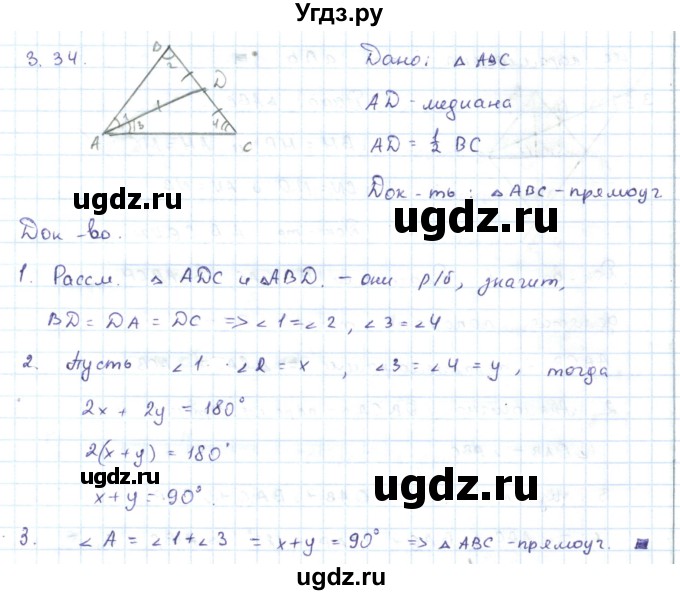 Угдз.ру
3.34.
B
2
D
1
3
4
A
C
Дано: △ ABC
AD - медиана
AD = 1/2 BC
Док-ть: △ABC - прямоуг
ugdz.ru
ugdz.ru
Док-во.
1. Рассм. △ ADC и △ABD. - они р/б, значит,
BD = DA = DC => ∠1 = ∠2, ∠3 = ∠4
2. Пусть ∠1 · ∠2 = x, ∠3 = ∠4 = y, тогда
2x + 2y = 180°
2(x+y) = 180°
ugdz.ru
ugdz.ru
x+y = 90°.
3. ∠A = ∠1+∠3 = x+y = 90° => △ABC - прямоуг.
ugdz.ru